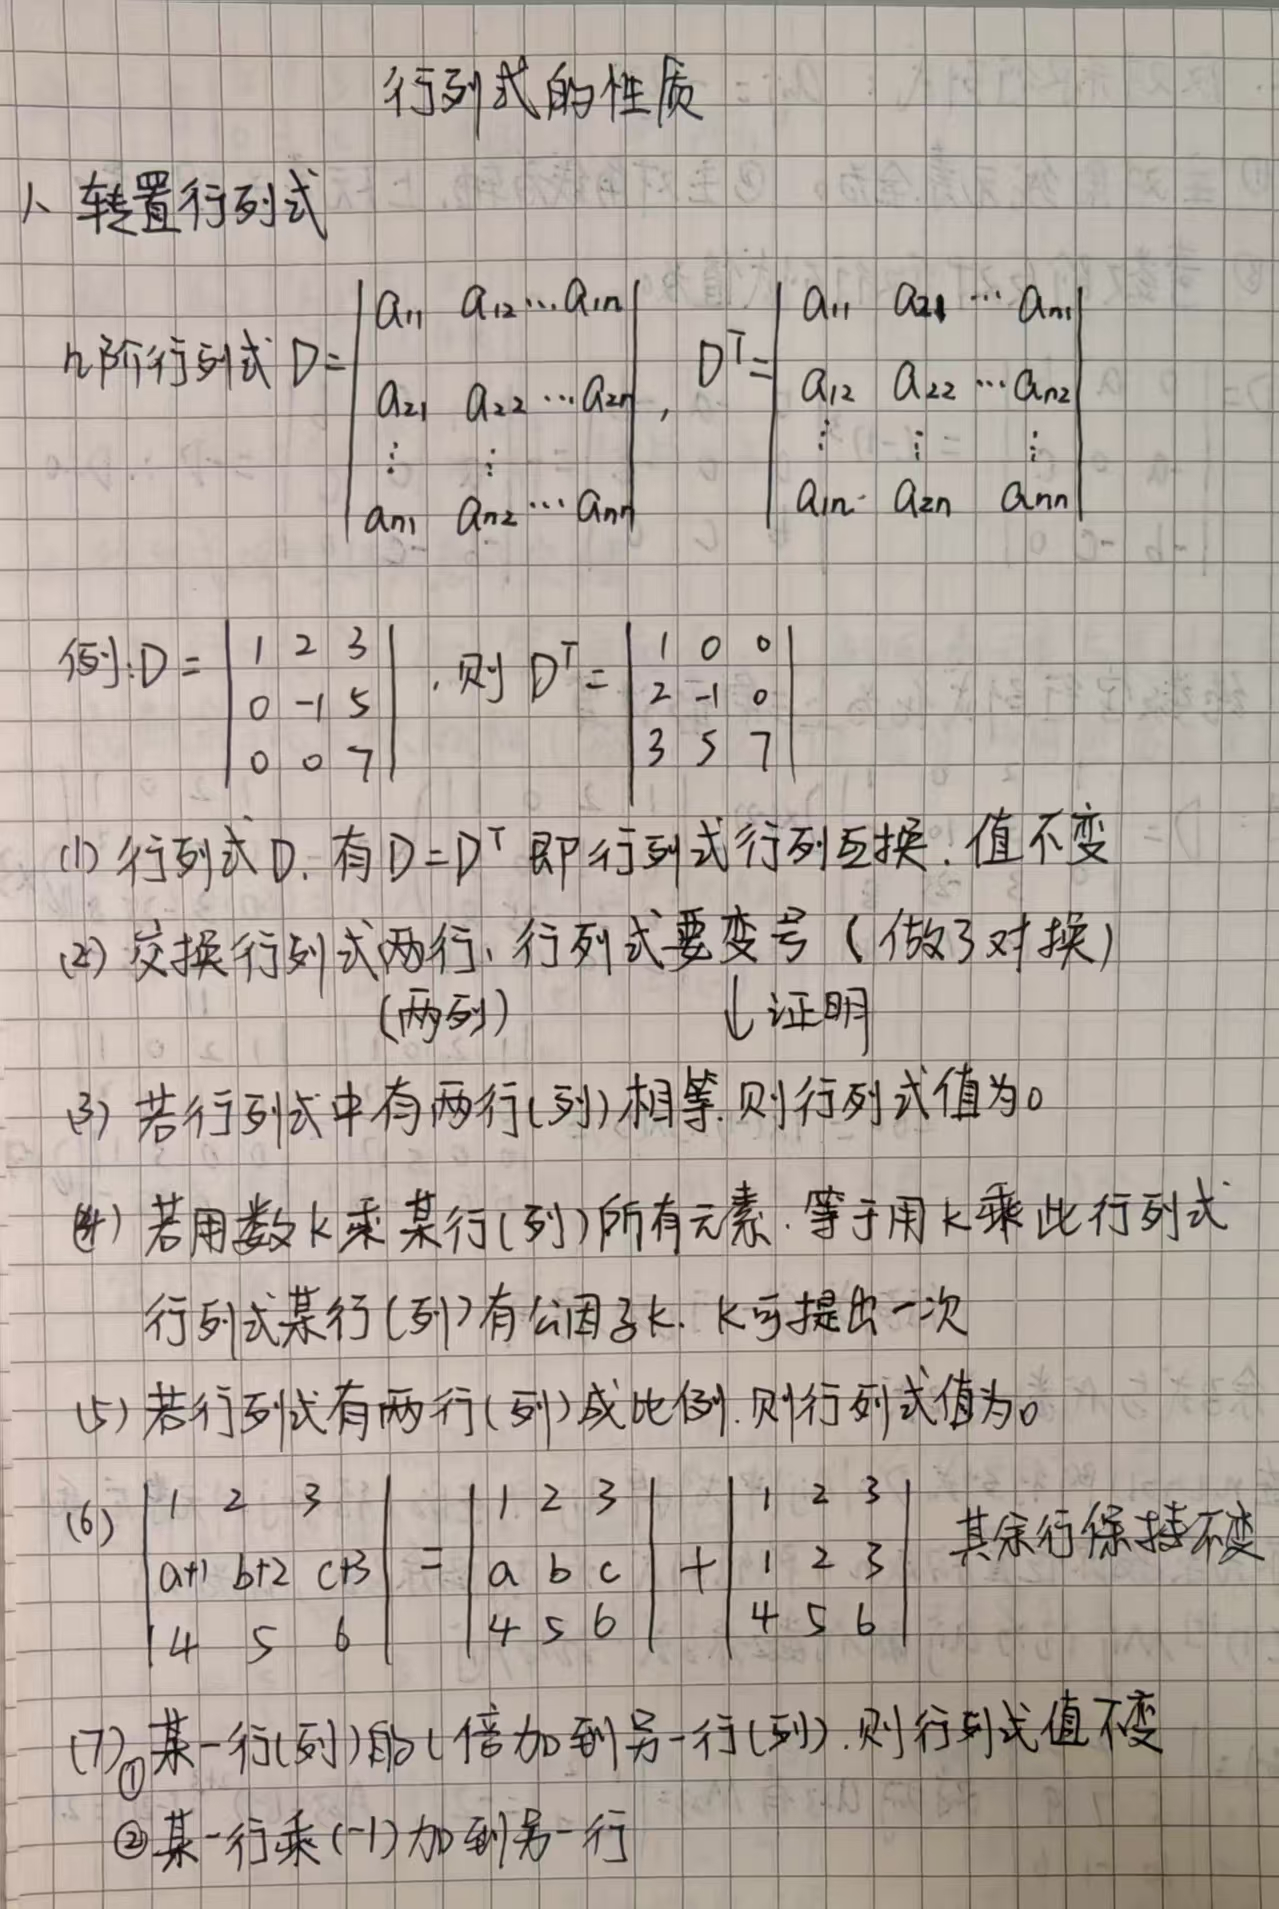 行列式的性质
1、转置行列式
n阶行列式 D = | a11 a12 ⋯ a1n | , D^T = | a11 a21 ⋯ an1 |
| a21 a22 ⋯ a2n | | a12 a22 ⋯ an2 |
| ⋮ ⋮ | | ⋮ ⋮ ⋮ |
| an1 an2 ⋯ ann | | a1n a2n ann |
例: D = | 1 2 3 | , 则 D^T = | 1 0 0 |
| 0 -1 5 | | 2 -1 0 |
| 0 0 7 | | 3 5 7 |
(1) 行列式D, 有D=D^T 即行列式行列互换, 值不变
(2) 交换行列式两行, 行列式要变号 (做了对换)
(两列) ↓证明
(3) 若行列式中有两行(列)相等, 则行列式值为0
(4) 若用数k乘某行(列)所有元素, 等于用k乘此行列式
行列式某行(列)有公因子k, k可提出一次
(5) 若行列式有两行(列)成比例, 则行列式值为0
(6) | 1 2 3 | = | 1 2 3 | + | 1 2 3 | 其余行保持不变
| a+1 b+2 c+3 | | a b c | | 1 2 3 |
| 4 5 6 | | 4 5 6 | | 4 5 6 |
(7) ① 某一行(列)的l倍加到另一行(列), 则行列式值不变
② 某一行乘(-1)加到另一行